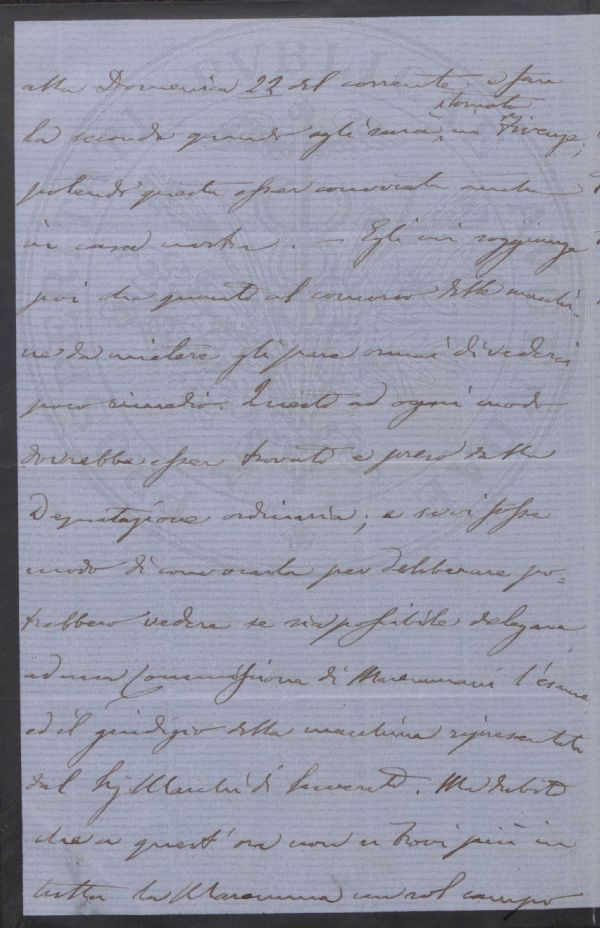 alla Domenica 22 del corrente, e fare
la seconda quando egli sarà tornato in Firenze,
potendo questa esser convocata anche
in casa nostra. — Egli mi soggiunge
poi che quanto al concorso delle macchi-
ne da mietere gli pare ormai di vederci
poco rimedio. Questo ad ogni modo
dovrebbe esser trovato e preso dalla
Deputazione ordinaria; e se vi fosse
modo di convocarla per deliberare po-
trebbero vedere se sia possibile delegare
ad una Commissione di Maremmani l'esame
ed il giudizio della macchina ripresentata
dal Sig Marchi di Suvereto. Ma dubito
che a quest'ora non si trovi più in
tutta la Maremma un sol campo